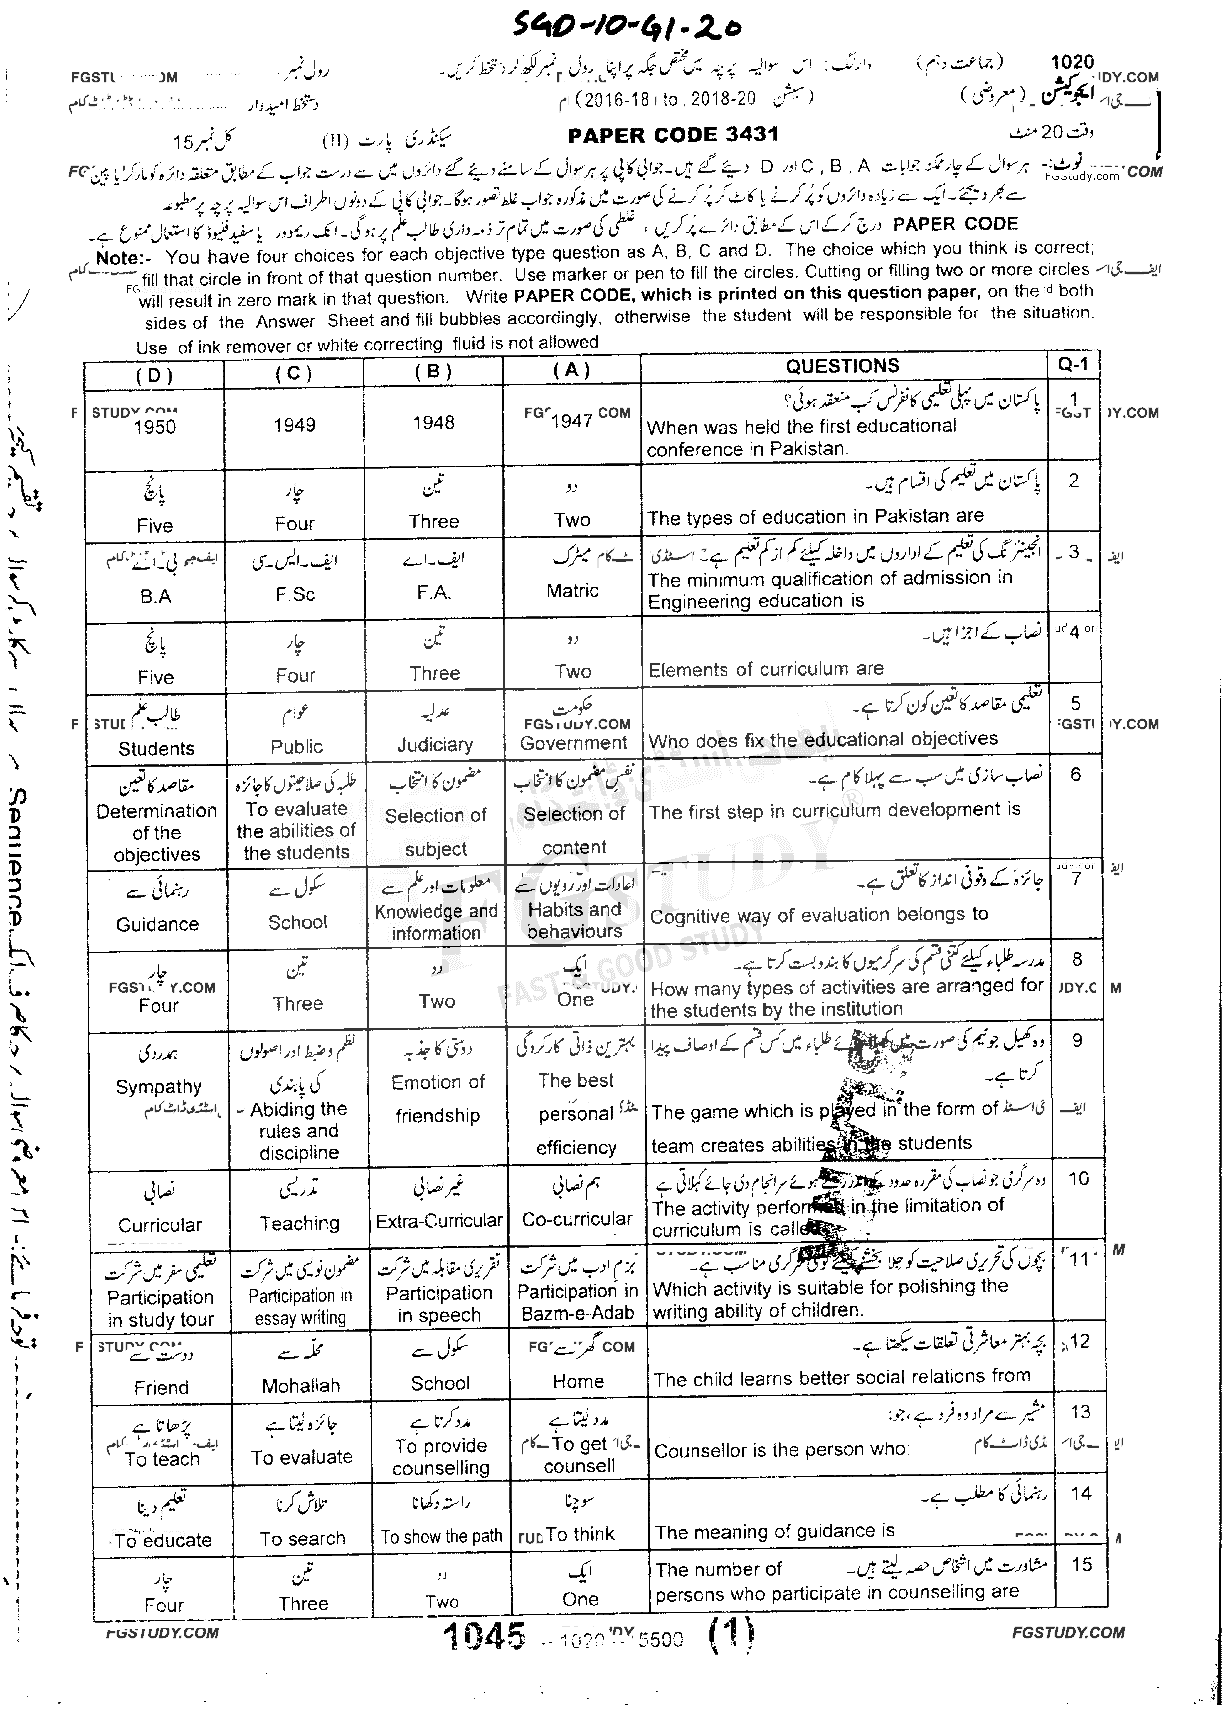 SGD-10-G1-20
1020 (جماعت دہم) وارننگ: اس سوالیہ پرچہ میں مختص جگہ پر اپنا رول نمبر لکھ کر دستخط کریں۔ رول نمبر
ایجوکیشن (معروضی) (سیشن 2018-20 to 2016-18) دستخط امیدوار
وقت 20 منٹ PAPER CODE 3431 سیکنڈری پارٹ (II) کل نمبر 15
نوٹ:- ہر سوال کے چار ممکنہ جوابات A ، B ، C اور D دیئے گئے ہیں۔ جوابی کاپی پر ہر سوال کے سامنے دیئے گئے دائروں میں سے درست جواب کے مطابق متعلقہ دائرہ کو مارکر یا پین
سے بھر دیجئے۔ ایک سے زیادہ دائروں کو پُر کرنے یا کاٹ کر پُر کرنے کی صورت میں مذکورہ جواب غلط تصور ہوگا۔ جوابی کاپی کے دونوں اطراف اس سوالیہ پرچہ پر مطبوعہ
PAPER CODE درج کر کے اس کے مطابق دائرے پُر کریں، غلطی کی صورت میں تمام تر ذمہ داری طالب علم پر ہوگی۔ انک ریموور یا سفید فلیوڈ کا استعمال ممنوع ہے۔
Note:- You have four choices for each objective type question as A, B, C and D. The choice which you think is correct;
fill that circle in front of that question number. Use marker or pen to fill the circles. Cutting or filling two or more circles
will result in zero mark in that question. Write PAPER CODE, which is printed on this question paper, on the both
sides of the Answer Sheet and fill bubbles accordingly, otherwise the student will be responsible for the situation.
Use of ink remover or white correcting fluid is not allowed
(D) (C) (B) (A) QUESTIONS Q-1
پاکستان میں پہلی تعلیمی کانفرنس کب منعقد ہوئی؟ 1
1950 1949 1948 1947 When was held the first educational
conference in Pakistan.
پانچ چار تین دو پاکستان میں تعلیم کی اقسام ہیں۔ 2
Five Four Three Two The types of education in Pakistan are
بی۔اے ایف۔ایس۔سی ایف۔اے میٹرک انجینئرنگ کی تعلیم کے اداروں میں داخلہ کیلئے کم از کم تعلیم ہے۔ 3
B.A F.Sc F.A. Matric The minimum qualification of admission in
Engineering education is
پانچ چار تین دو نصاب کے اجزا ہیں۔ 4
Five Four Three Two Elements of curriculum are
طالب علم عوام عدلیہ حکومت تعلیمی مقاصد کا تعین کون کرتا ہے۔ 5
Students Public Judiciary Government Who does fix the educational objectives
مقاصد کا تعین طلبہ کی صلاحیتوں کا جائزہ مضمون کا انتخاب نفس مضمون کا انتخاب نصاب سازی میں سب سے پہلا کام ہے۔ 6
Determination of the objectives To evaluate the abilities of the students Selection of subject Selection of content The first step in curriculum development is
رہنمائی سے سکول سے معلومات اور علم سے عادات اور رویوں سے جائزہ کے وقوفی انداز کا تعلق ہے۔ 7
Guidance School Knowledge and information Habits and behaviours Cognitive way of evaluation belongs to
چار تین دو ایک مدرسہ طلباء کیلئے کتنی قسم کی سرگرمیوں کا بندوبست کرتا ہے۔ 8
Four Three Two One How many types of activities are arranged for
the students by the institution
ہمدردی نظم و ضبط اور اصولوں کی پابندی دوستی کا جذبہ بہترین ذاتی کارکردگی وہ کھیل جو ٹیم کی صورت میں طلباء میں کس قسم کے اوصاف پیدا کرتا ہے۔ 9
Sympathy Abiding the rules and discipline Emotion of friendship The best personal efficiency The game which is played in the form of
team creates abilities in the students
نصابی تدریسی غیر نصابی ہم نصابی وہ سرگرمی جو نصاب کی مقررہ حدود ہوئے سرانجام دی جائے کہلاتی ہے 10
Curricular Teaching Extra-Curricular Co-curricular The activity performed in the limitation of
curriculum is called
تعلیمی سفر میں شرکت مضمون نویسی میں شرکت تقریری مقابلہ میں شرکت بزم ادب میں شرکت بچوں کی تحریری صلاحیت کو جلا بخشنے کیلئے کونسی سرگرمی مناسب ہے۔ 11
Participation in study tour Participation in essay writing Participation in speech Participation in Bazm-e-Adab Which activity is suitable for polishing the
writing ability of children.
دوست سے محلہ سے سکول سے گھر سے بچہ بہتر معاشرتی تعلقات سیکھتا ہے۔ 12
Friend Mohallah School Home The child learns better social relations from
پڑھاتا ہے جائزہ لیتا ہے مدد کرتا ہے مدد لیتا ہے مشیر سے مراد وہ فرد ہے، جو: 13
To teach To evaluate To provide counselling To get counsell Counsellor is the person who:
تعلیم دینا تلاش کرنا راستہ دکھانا سوچنا رہنمائی کا مطلب ہے۔ 14
To educate To search To show the path To think The meaning of guidance is
چار تین دو ایک The number of مشاورت میں اشخاص حصہ لیتے ہیں۔ 15
Four Three Two One persons who participate in counselling are
FGSTUDY.COM 1045 -- 1020 5500 (1) FGSTUDY.COM
FGSTUDY
FAST & GOOD STUDY